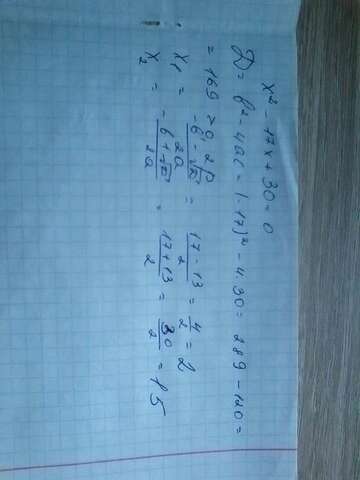 x² - 17x + 30 = 0
D = b² - 4ac = (-17)² - 4·30 = 289 - 120 =
= 169 > 0, 2р
x₁ = \frac{-b - √D}{2a} = \frac{17 - 13}{2} = \frac{4}{2} = 2
x₂ = \frac{-b + √D}{2a} = \frac{17 + 13}{2} = \frac{30}{2} = 15